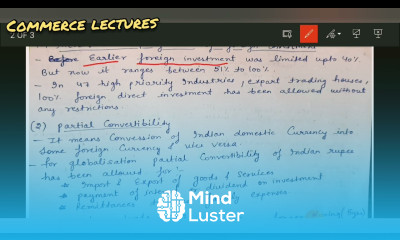 COMMERCE LECTURES
2 OF 3
- Before Earlier foreign investment was limited upto 40%
But now it ranges between 51% to 100%
- In 47 high priority Industries, export trading houses,
100% foreign direct investment has been allowed without
any restrictions.
(2) Partial Convertibility
- It means Conversion of Indian domestic Currency into
Some foreign Currency & vice versa.
- for globalisation partial Convertibility of Indian rupees
has been allowed for:-
* Import & Export of goods & Services
* payment of dividend on investment
* Remittances expenses
Mind
Luster